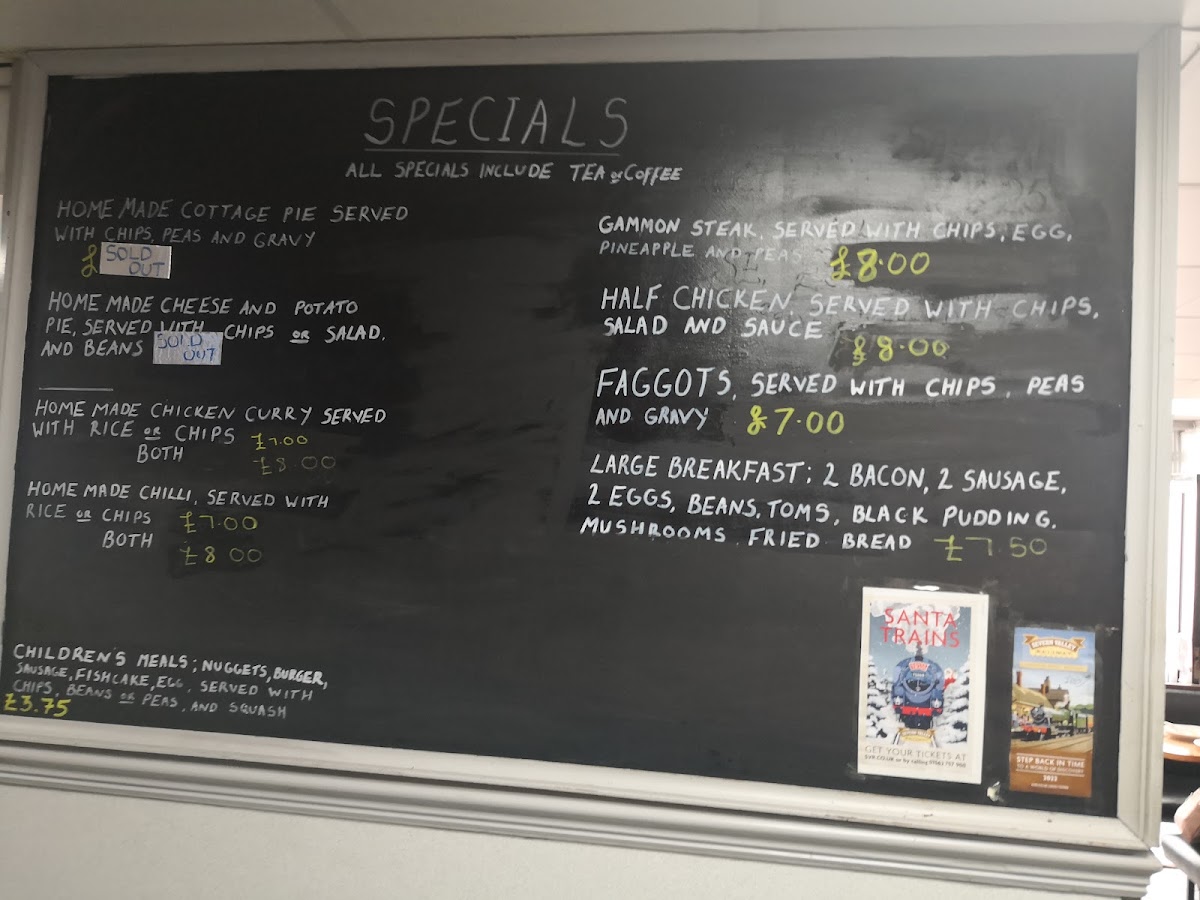 SPECIALS
ALL SPECIALS INCLUDE TEA or COFFEE
HOME MADE COTTAGE PIE SERVED
WITH CHIPS, PEAS AND GRAVY
£ SOLD
OUT
HOME MADE CHEESE AND POTATO
PIE, SERVED WITH CHIPS OR SALAD.
AND BEANS SOLD
OUT
HOME MADE CHICKEN CURRY SERVED
WITH RICE OR CHIPS £7.00
BOTH £8.00
HOME MADE CHILLI, SERVED WITH
RICE OR CHIPS £7.00
BOTH £8.00
CHILDREN'S MEALS; NUGGETS, BURGER,
SAUSAGE, FISHCAKE, EGG, SERVED WITH
CHIPS, BEANS OR PEAS, AND SQUASH
£3.75
GAMMON STEAK, SERVED WITH CHIPS, EGG,
PINEAPPLE AND PEAS £8.00
HALF CHICKEN, SERVED WITH CHIPS,
SALAD AND SAUCE £8.00
FAGGOTS, SERVED WITH CHIPS, PEAS
AND GRAVY £7.00
LARGE BREAKFAST; 2 BACON, 2 SAUSAGE,
2 EGGS, BEANS, TOMS, BLACK PUDDING.
MUSHROOMS. FRIED BREAD £7.50
SANTA
TRAINS
GET YOUR TICKETS AT
SVR.CO.UK or by calling
SEVERN VALLEY
RAILWAY
STEP BACK IN TIME
TO A WORLD OF DISCOVERY
2022